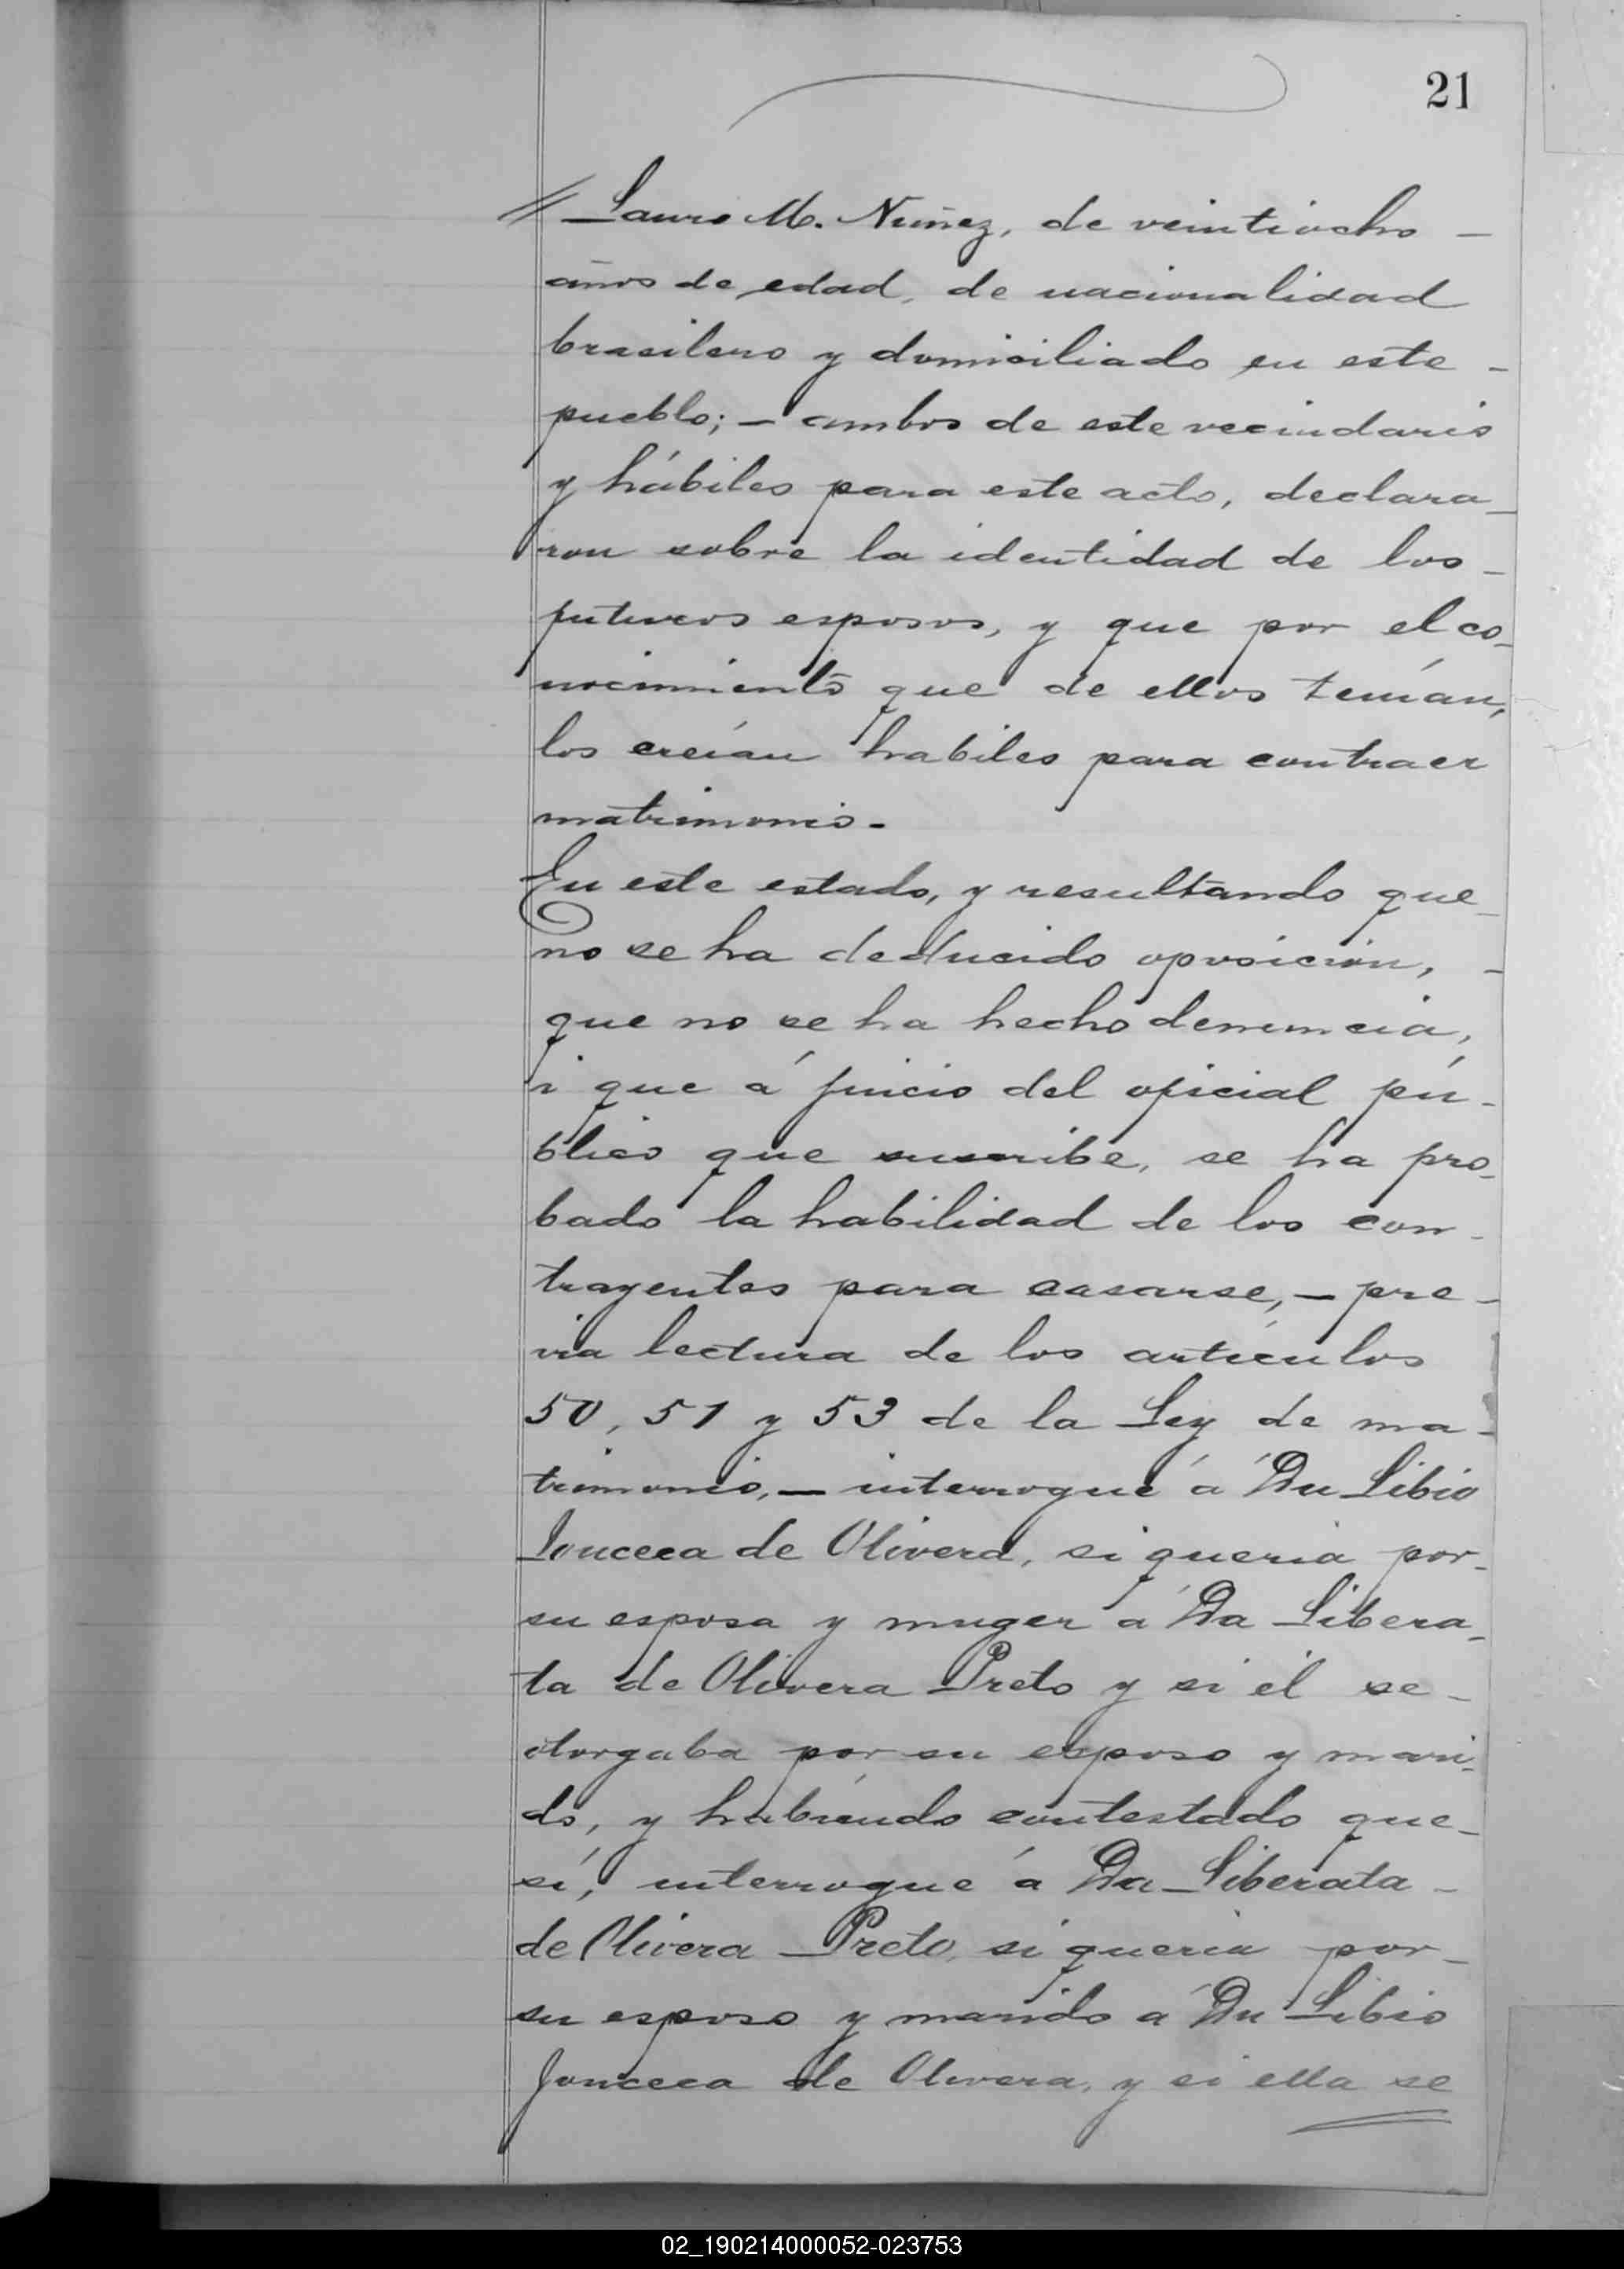 21
// Lauro M. Núñez, de veintiocho –
años de edad, de nacionalidad
brasilero y domiciliado en este –
pueblo; – ambos de este vecindario
y hábiles para este acto, declara–
ron sobre la identidad de los –
futuros esposos, y que por el co–
nocimiento que de ellos tenían,
los creían habiles para contraer
matrimonio –
En este estado, y resultando que –
no se ha deducido oposición, –
que no se ha hecho denuncia,
i que á juicio del oficial pú–
blico que suscribe, se ha pro–
bado la habilidad de los con–
trayentes para casarse, – pre–
via lectura de los artículos
50, 51 y 53 de la Ley de ma–
trimonio, – interrogué á Dn Libio
Fonceca de Olivera, si queria por–
su esposa y muger á Da Libera–
ta de Olivera Preto y si él se –
otorgaba por su esposo y mari–
do, y habiendo contestado que –
sí, interrogué á Da Liberata –
de Olivera Preto, si queria por –
su esposo y marido á Dn Libio
Fonceca de Olivera, y si ella se
02_190214000052-023753